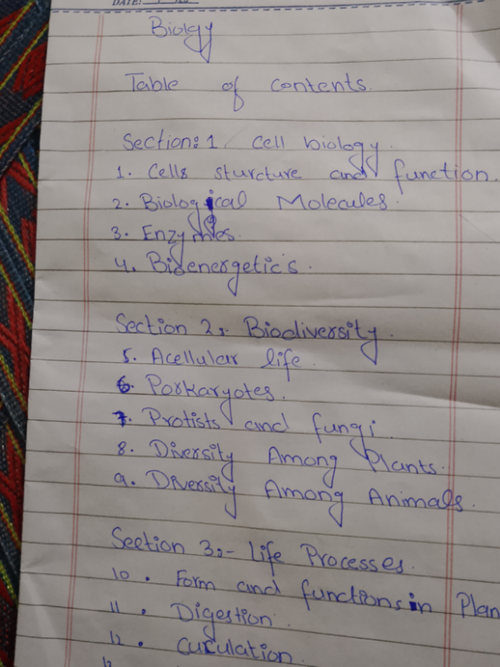 DATE:
Biolgy
Table of contents.
Section: 1 Cell biology
1. Cells sturcture and function.
2. Biological Molecules.
3. Enzymes.
4. Bioenergetic's.
Section 2:- Biodiversity.
5. Acellular life.
6. Porkaryotes.
7. Protists and fungi.
8. Diversity Among Plants.
9. Diversity Among Animals.
Section 3:- Life Processes.
10. Form and functions in Plan
11. Digestion.
12. Cuculation.
13